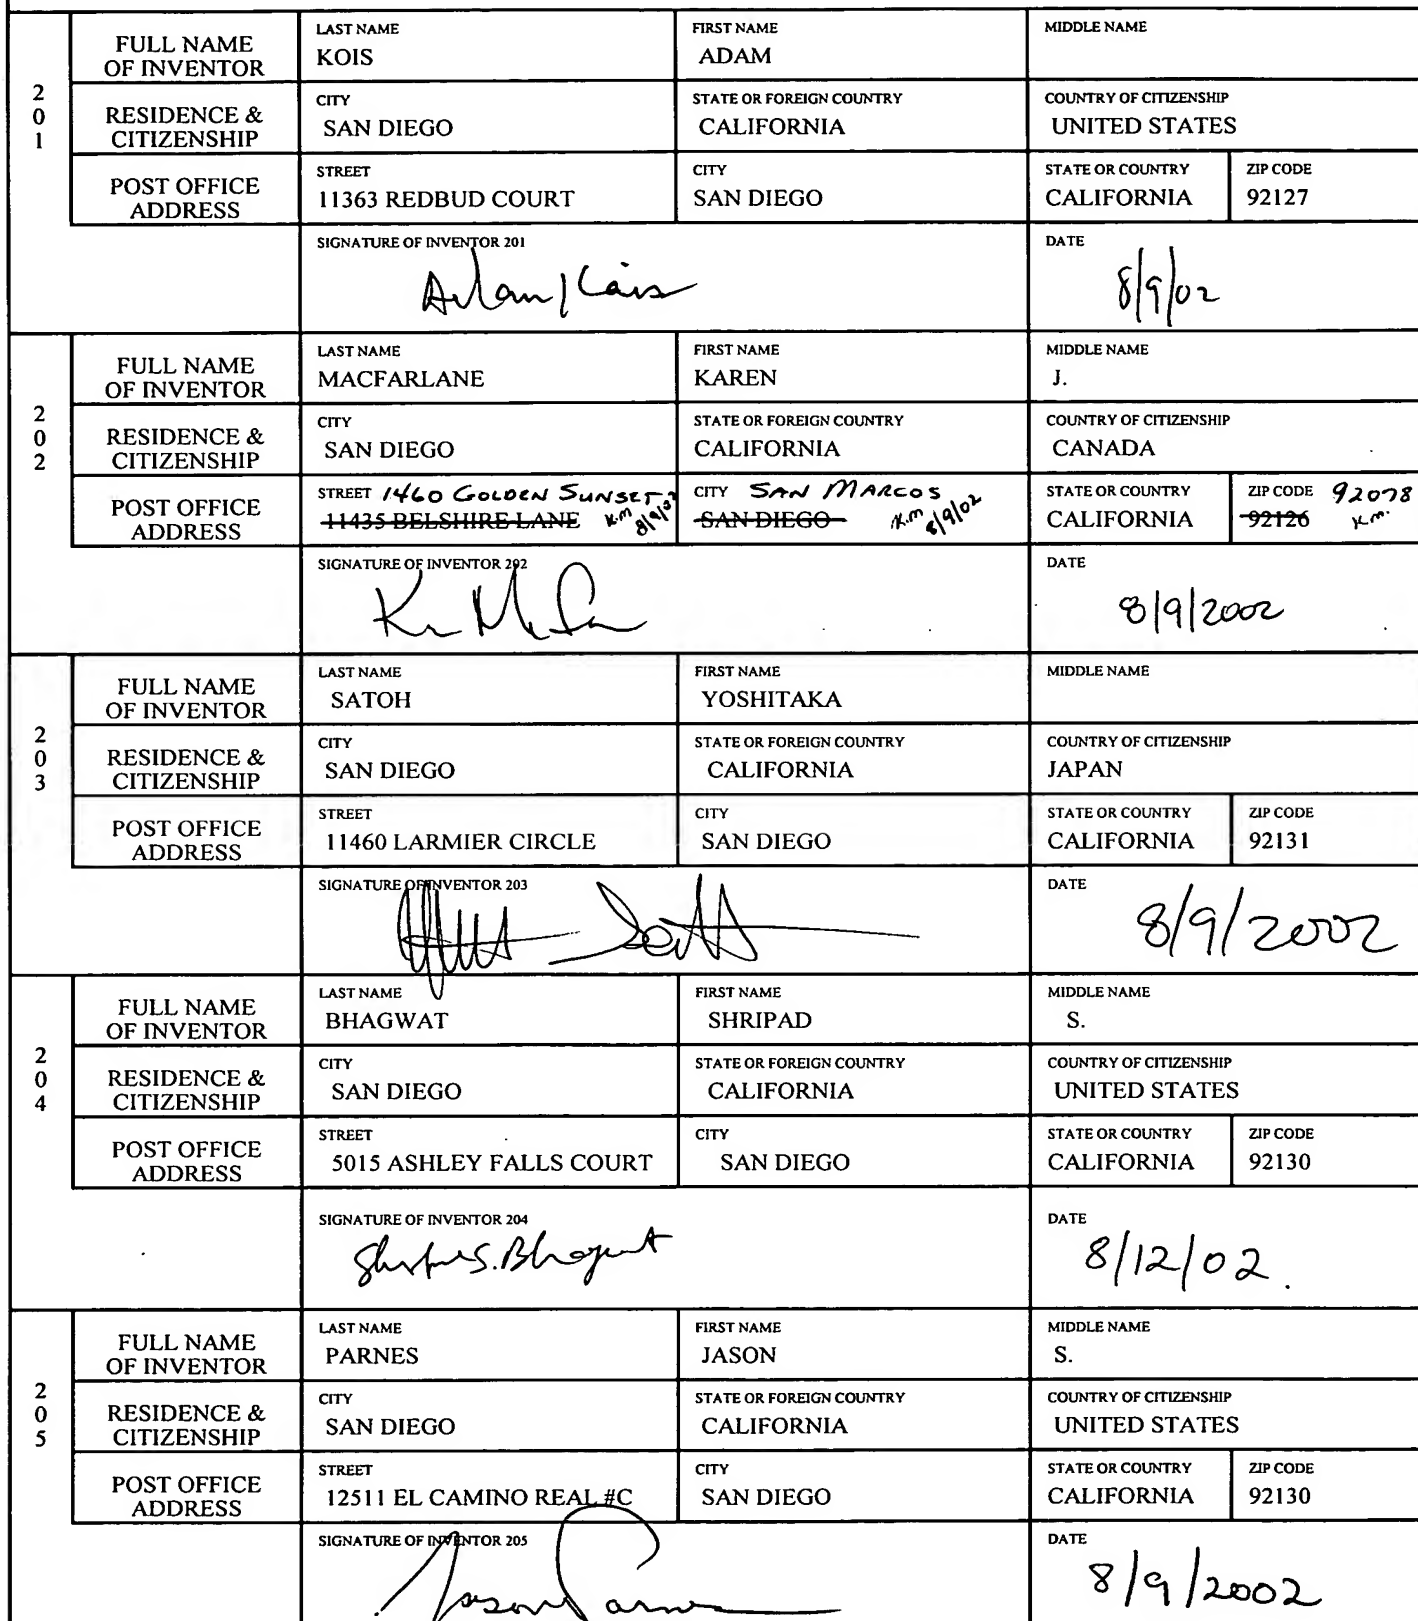 201
FULL NAME OF INVENTOR
LAST NAME
KOIS
FIRST NAME
ADAM
MIDDLE NAME
RESIDENCE & CITIZENSHIP
CITY
SAN DIEGO
STATE OR FOREIGN COUNTRY
CALIFORNIA
COUNTRY OF CITIZENSHIP
UNITED STATES
POST OFFICE ADDRESS
STREET
11363 REDBUD COURT
CITY
SAN DIEGO
STATE OR COUNTRY
CALIFORNIA
ZIP CODE
92127
SIGNATURE OF INVENTOR 201
Adam Kois
DATE
8/9/02
202
FULL NAME OF INVENTOR
LAST NAME
MACFARLANE
FIRST NAME
KAREN
MIDDLE NAME
J.
RESIDENCE & CITIZENSHIP
CITY
SAN DIEGO
STATE OR FOREIGN COUNTRY
CALIFORNIA
COUNTRY OF CITIZENSHIP
CANADA
POST OFFICE ADDRESS
STREET 1460 GOLDEN SUNSET
11435 BELSHIRE LANE K.m 8/9/02
CITY SAN MARCOS
SAN DIEGO K.m 8/9/02
STATE OR COUNTRY
CALIFORNIA
ZIP CODE 92078
92126 K.m.
SIGNATURE OF INVENTOR 202
DATE
8/9/2002
203
FULL NAME OF INVENTOR
LAST NAME
SATOH
FIRST NAME
YOSHITAKA
MIDDLE NAME
RESIDENCE & CITIZENSHIP
CITY
SAN DIEGO
STATE OR FOREIGN COUNTRY
CALIFORNIA
COUNTRY OF CITIZENSHIP
JAPAN
POST OFFICE ADDRESS
STREET
11460 LARMIER CIRCLE
CITY
SAN DIEGO
STATE OR COUNTRY
CALIFORNIA
ZIP CODE
92131
SIGNATURE OF INVENTOR 203
DATE
8/9/2002
204
FULL NAME OF INVENTOR
LAST NAME
BHAGWAT
FIRST NAME
SHRIPAD
MIDDLE NAME
S.
RESIDENCE & CITIZENSHIP
CITY
SAN DIEGO
STATE OR FOREIGN COUNTRY
CALIFORNIA
COUNTRY OF CITIZENSHIP
UNITED STATES
POST OFFICE ADDRESS
STREET
5015 ASHLEY FALLS COURT
CITY
SAN DIEGO
STATE OR COUNTRY
CALIFORNIA
ZIP CODE
92130
SIGNATURE OF INVENTOR 204
S. Bhagwat
DATE
8/12/02.
205
FULL NAME OF INVENTOR
LAST NAME
PARNES
FIRST NAME
JASON
MIDDLE NAME
S.
RESIDENCE & CITIZENSHIP
CITY
SAN DIEGO
STATE OR FOREIGN COUNTRY
CALIFORNIA
COUNTRY OF CITIZENSHIP
UNITED STATES
POST OFFICE ADDRESS
STREET
12511 EL CAMINO REAL #C
CITY
SAN DIEGO
STATE OR COUNTRY
CALIFORNIA
ZIP CODE
92130
SIGNATURE OF INVENTOR 205
Jason Parnes
DATE
8/9/2002